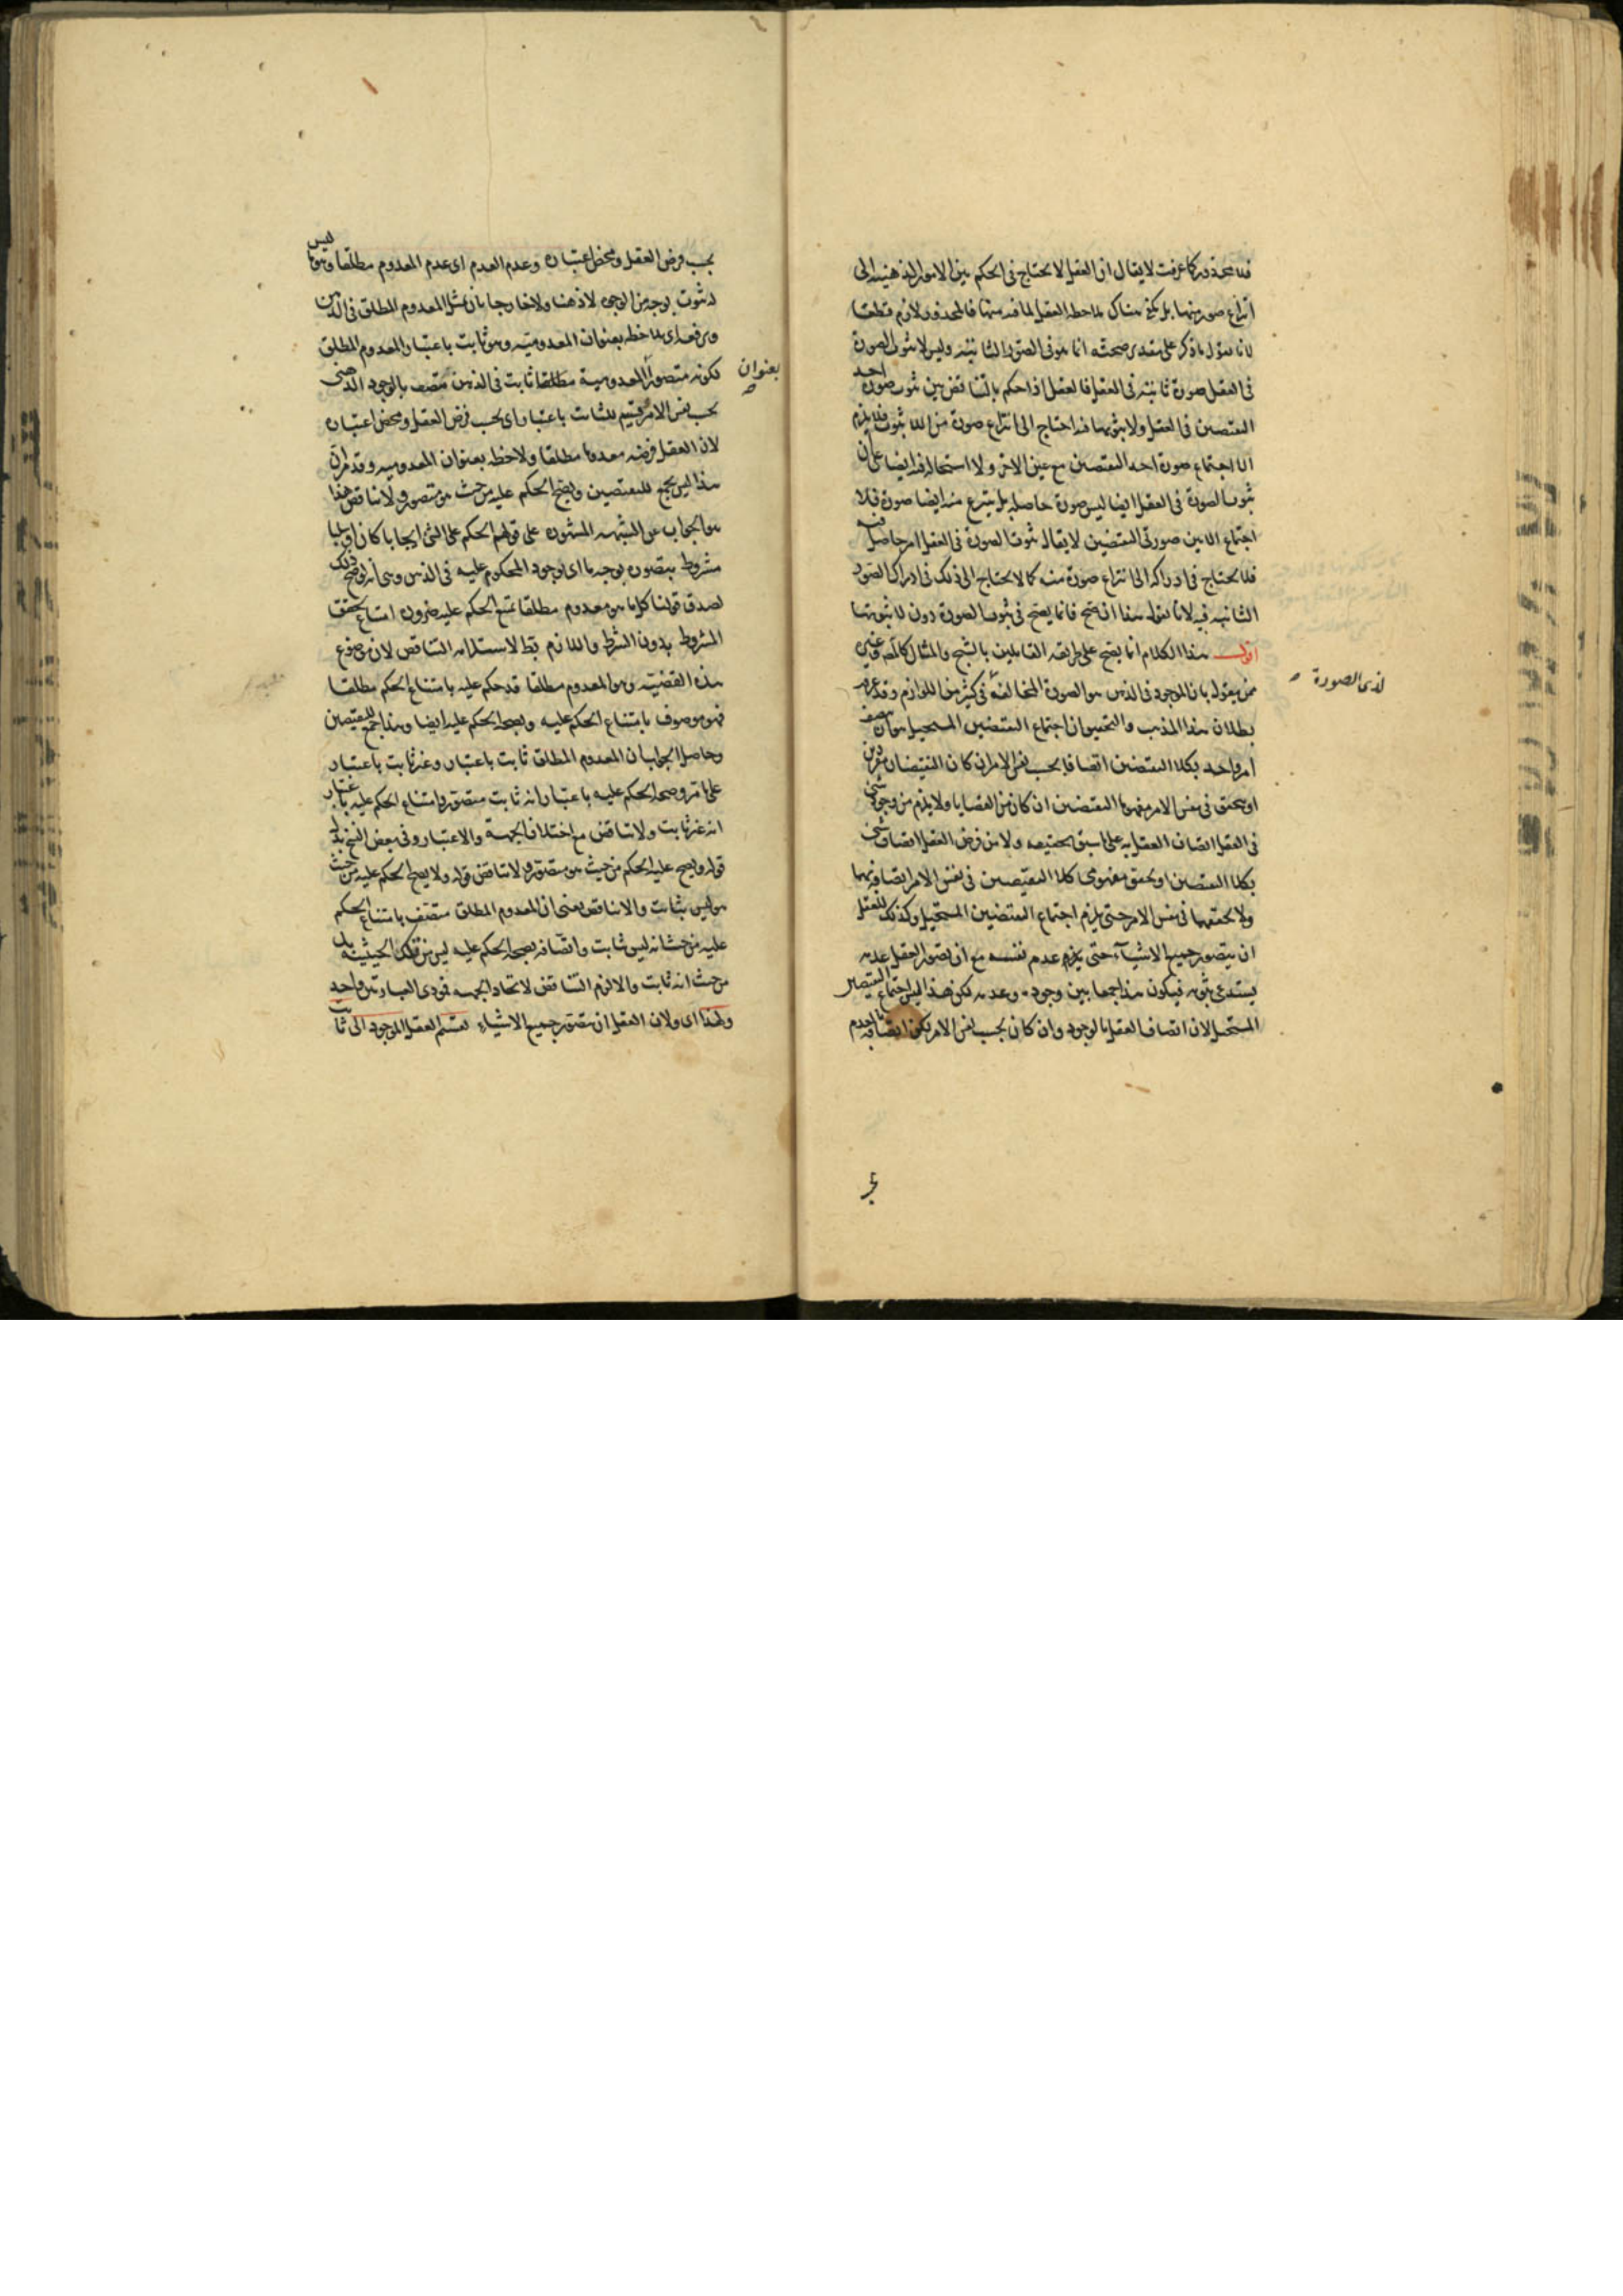 فلا محذور كما عرفت لا يقال ان العقل لا يحتاج فى الحكم بين الامور الذهنية الى
انتزاع صور منها بل يكفى هناك ملاحظة العقل لما فيه منها فالمحذور لازم قطعا
لانا نقول ما ذكر على تقدير صحته انما هو فى الصور الثابتة وليس لا ثبوت الصورة
فى العقل صورة ثابتة فى العقل فالعقل اذا حكم بالتناقض بين ثبوت صورة احد
النقيضين فى العقل ولا ثبوتها فيه احتاج الى انتزاع صورة من اللا ثبوت فلا يلزم
الا اجتماع صورة احد النقيضين مع عين الاخر ولا استحالة فيه ايضا على ان
ثبوت الصورة فى العقل ايضا ليس صورة حاصلة بل ينتزع منه ايضا صورة فلا
اجتماع الا بين صورتى النقيضين لا يقال ثبوت الصورة فى العقل امر حاصل فيه
فلا يحتاج فى ادراكه الى انتزاع صورة منه كما لا يحتاج الى ذلك فى ادراك الصور
الثابتة فيه لانا نقول هذا ان صح فانما يصح فى ثبوت الصورة دون لا ثبوتها
اقول هذا الكلام انما يصح على طريقة القائلين بالشبح والمثال كالمص وغيره
ممن يقول بان الموجود فى الذهن هو الصورة المخالفة فى كثير من اللوازم وقد عرفت
لذى الصورة
بطلان هذا المذهب والتحقيق ان اجتماع النقيضين المستحيل هو ان يتصف
امر واحد بكلا النقيضين اتصافا بحسب نفس الامر ان كان النقيضان مفردين
او يتحقق فى نفس الامر مفهوما النقيضين ان كان من القضايا ولا يلزم من وجود شئ
فى العقل اتصاف العقل به على ما سبق تحقيقه ولا من فرض العقل اتصاف شئ
بكلا النقيضين او تحقق مفهومى كلا النقيضين فى نفس الامر اتصافه بهما
ولا تحققهما فى نفس الامر حتى يلزم اجتماع النقيضين المستحيل وكذلك للعقل
ان يتصور جميع الاشياء حتى يلزم عدم نفسه مع ان تصور العقل عدمه
يستدعى ثبوته فيكون هذا جمعا بين وجوده وعدمه لكن هذا ليس اجتماع النقيضين
المستحيل لان اتصاف العقل بالوجود وان كان بحسب نفس الامر لكن اتصافه بالعدم
بحسب فرض العقل ومحض اعتباره وعدم العدم اى عدم المعدوم مطلقا وهو ما ليس
له ثبوت بوجه من الوجوه لا ذهنا ولا خارجا بان يمثل المعدوم المطلق فى الذهن
ويرفعه اى يلاحظه بعنوان المعدومية وهو ثابت باعتبار المعدوم المطلق
لكونه متصورا المعدومية مطلقا ثابت فى الذهن متصف بالوجود الذهنى
بعنوان
بحسب نفس الامر قسيم للثابت باعتبار اى بحسب فرض العقل ومحض اعتباره
لان العقل فرضه معدوما مطلقا ولاحظه بعنوان المعدومية وقد مر ان
هذا ليس بجمع للنقيضين ويصح الحكم عليه من حيث هو متصور ولا تناقض هذا
هو الجواب عن الشبهة المشهورة على قولهم الحكم على الشئ ايجابا كان او سلبا
مشروط بتصوره بوجه ما اى بوجود المحكوم عليه فى الذهن وهى انه لو صح ذلك
لصدق قولنا كل ما هو معدوم مطلقا يمتنع الحكم عليه ضرورة امتناع تحقق
المشروط بدون الشرط واللازم بط لاستلزامه التناقض لان موضوع
هذه القضية وهو المعدوم مطلقا قد حكم عليه بامتناع الحكم مطلقا
فهو موصوف بامتناع الحكم عليه وبصحة الحكم عليه ايضا وهذا جمع للنقيضين
وحاصل الجواب ان المعدوم المطلق ثابت باعتبار وغير ثابت باعتبار
على ما مر وصحة الحكم عليه باعتبار انه ثابت متصور وامتناع الحكم عليه باعتبار
انه غير ثابت ولا تناقض مع اختلاف الجهة والاعتبار وفى بعض النسخ بدل
قوله ويصح عليه الحكم من حيث هو متصور ولا تناقض قوله ولا يصح الحكم عليه من حيث
هو ليس بثابت والا تناقض يعنى ان المعدوم المطلق متصف بامتناع الحكم
عليه من حيث انه ليس ثابت واتصافه بصحة الحكم عليه ليس من تلك الحيثية بل
من حيث انه ثابت والا لزم التناقض لاتحاد الجهة فمؤدى العبارتين واحد
ولهذا اى ولان العقل ان يتصور جميع الاشياء نقسم العقل الموجود الى ثابت